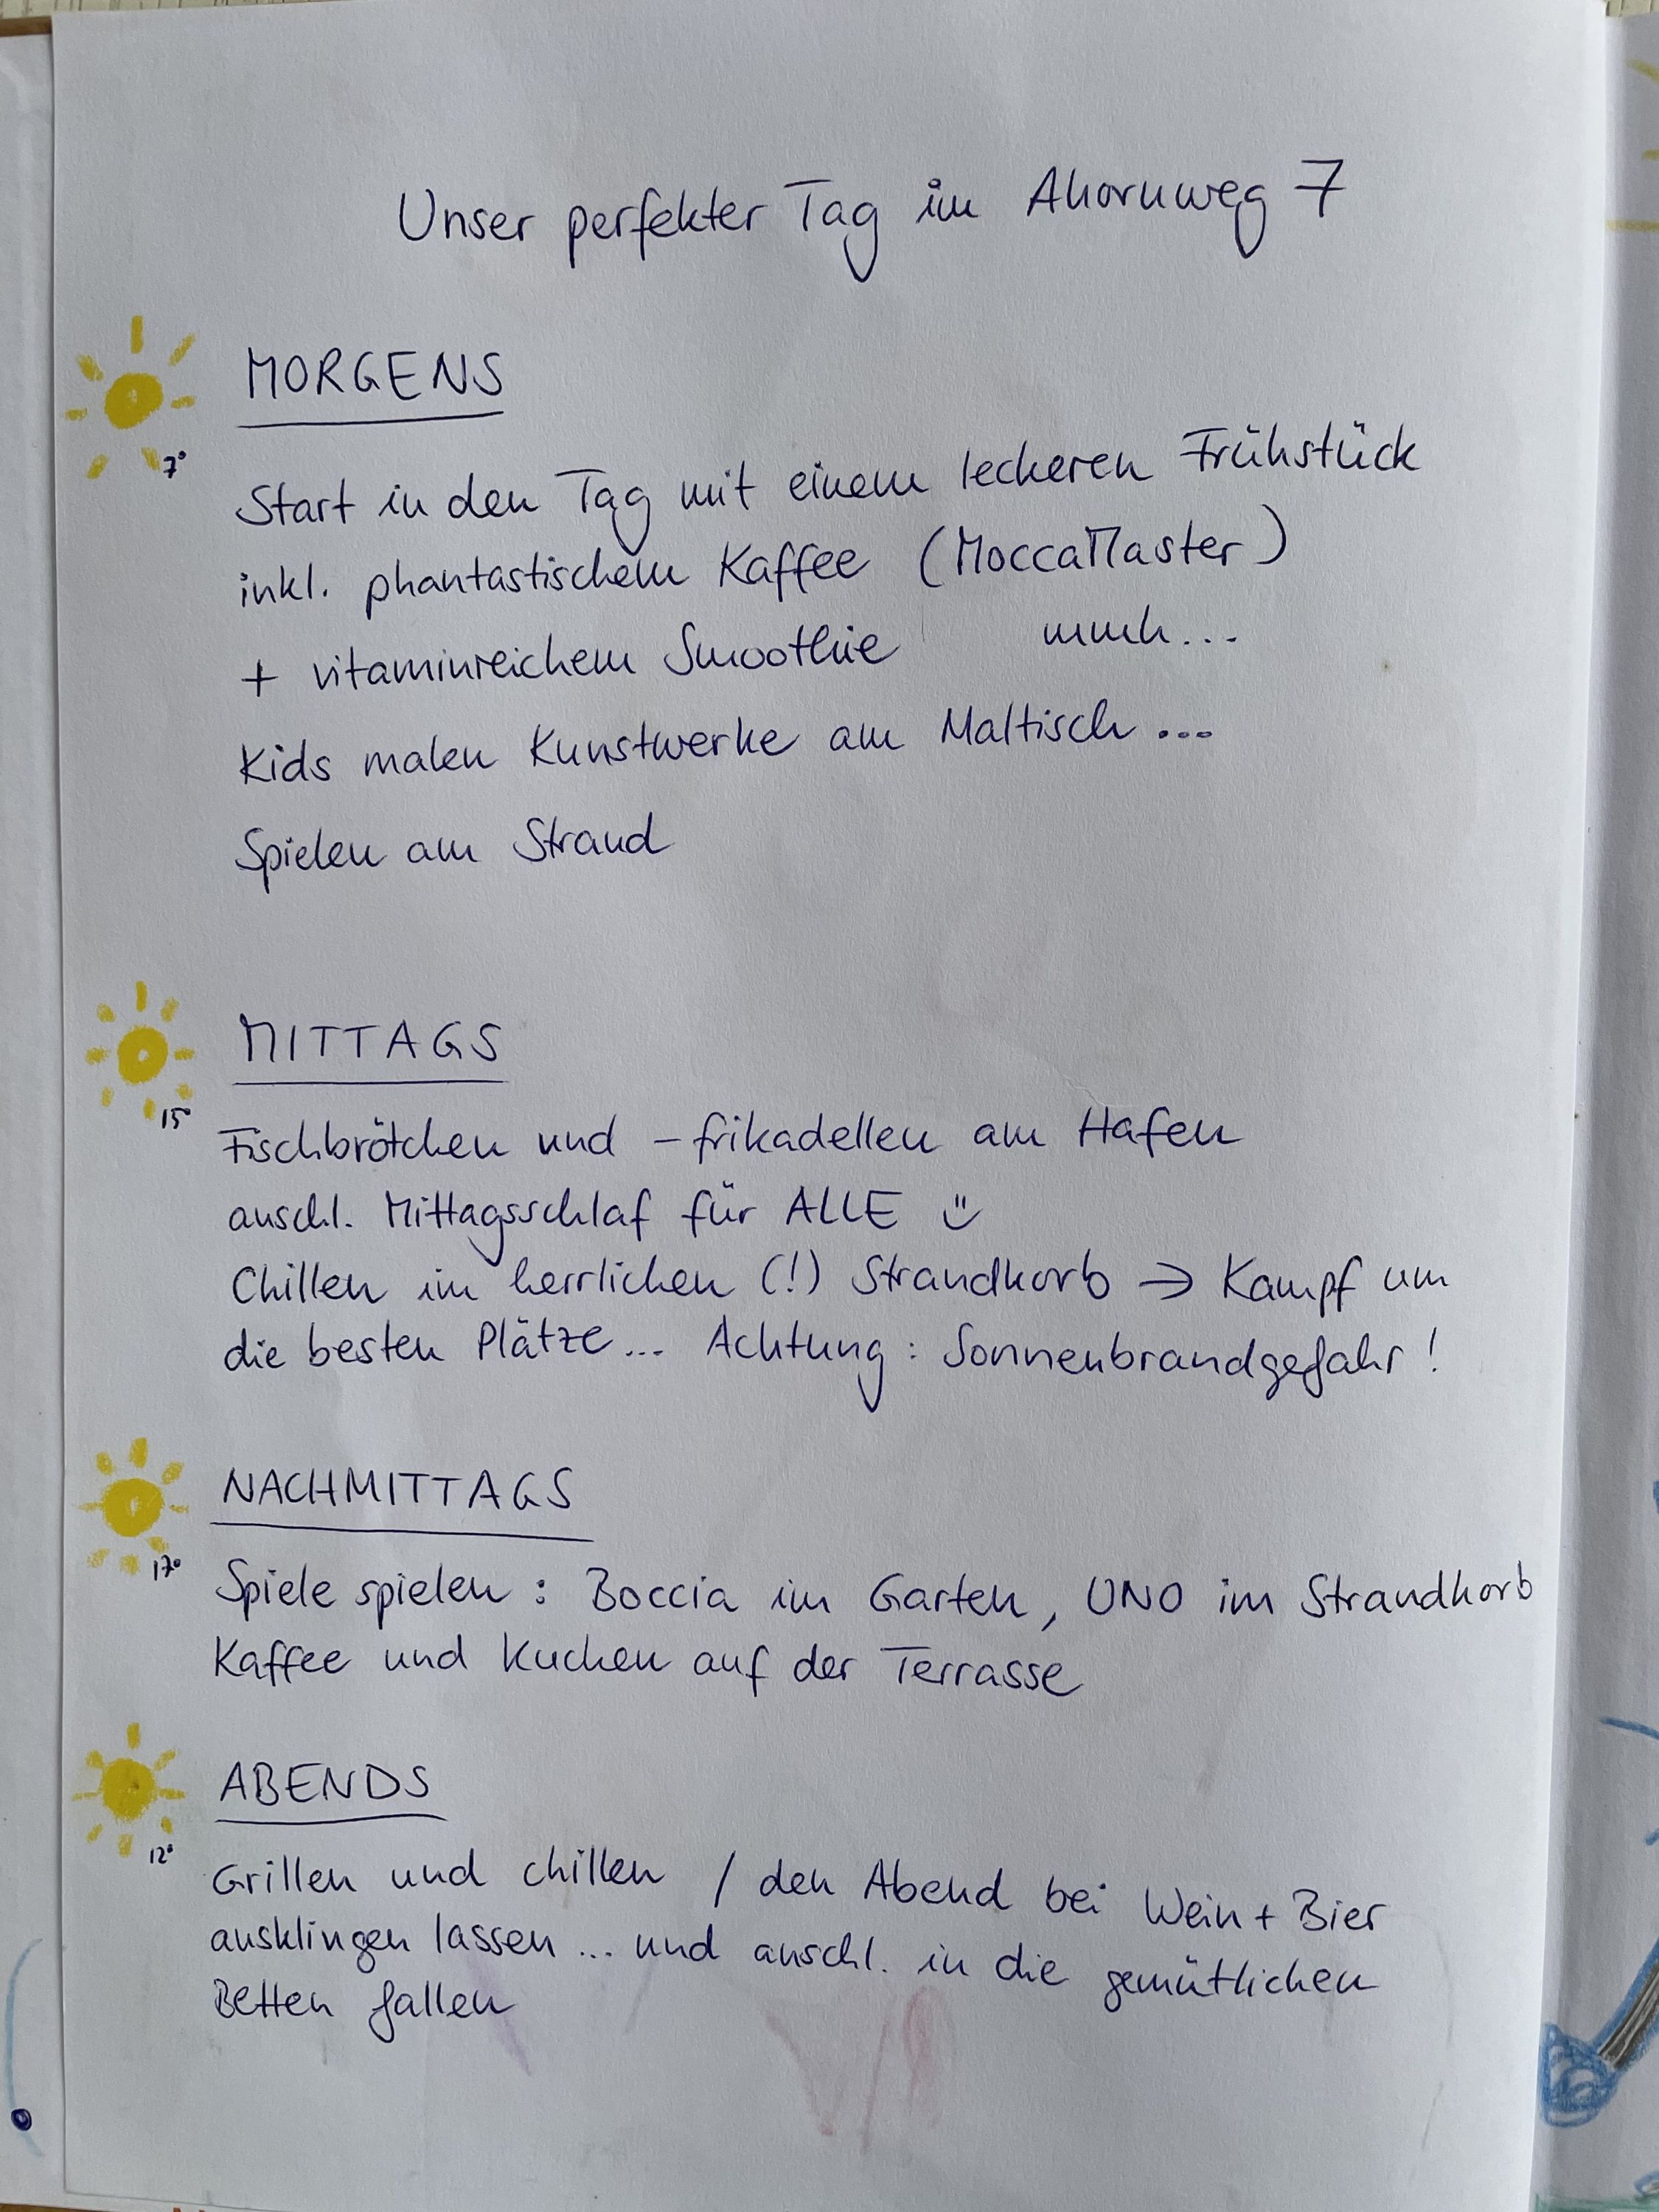 Unser perfekter Tag im Ahornweg 7
MORGENS
7°
Start in den Tag mit einem leckeren Frühstück
inkl. phantastischem Kaffee (MoccaMaster)
+ vitaminreichem Smoothie mmh...
Kids malen Kunstwerke am Maltisch...
Spielen am Strand
MITTAGS
15°
Fischbrötchen und -frikadellen am Hafen
anschl. Mittagsschlaf für ALLE ü
Chillen im herrlichen (!) Strandkorb → Kampf um
die besten Plätze... Achtung: Sonnenbrandgefahr!
NACHMITTAGS
17°
Spiele spielen: Boccia im Garten, UNO im Strandkorb
Kaffee und Kuchen auf der Terrasse
ABENDS
12°
Grillen und chillen / den Abend bei Wein + Bier
ausklingen lassen ... und anschl. in die gemütlichen
Betten fallen